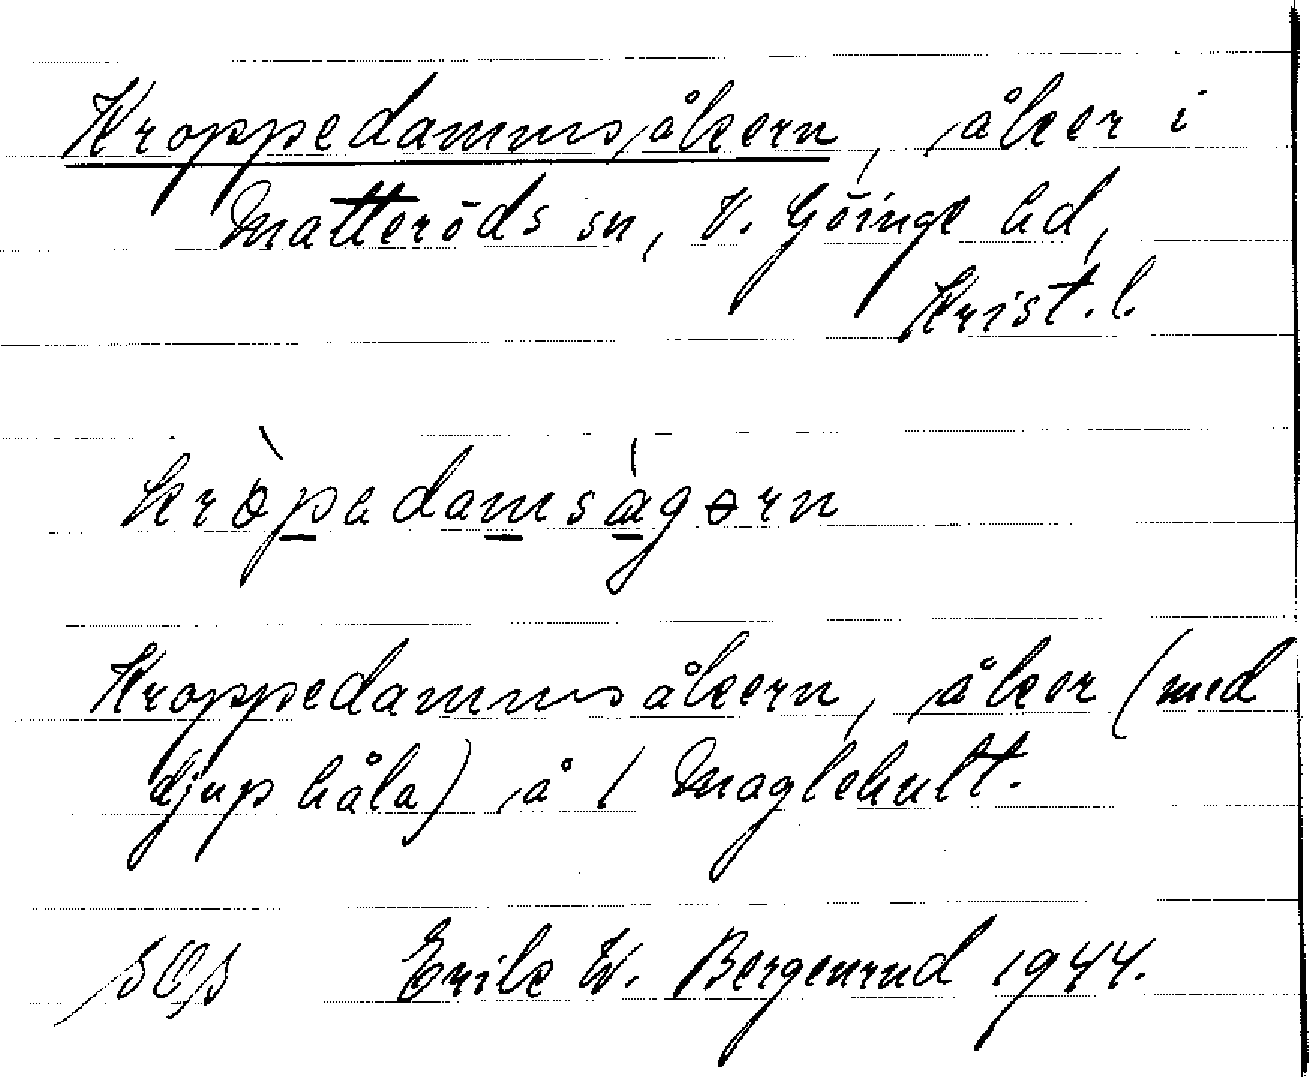 Kroppedammsåkern, åker i
Matteröds sn, V. Göinge hd,
Krist. l.
kròpedamságərn
Kroppedammsåkern, åker (med
djup håla) å 1 Maglehult.
Erik W. Bergenrud 1944.